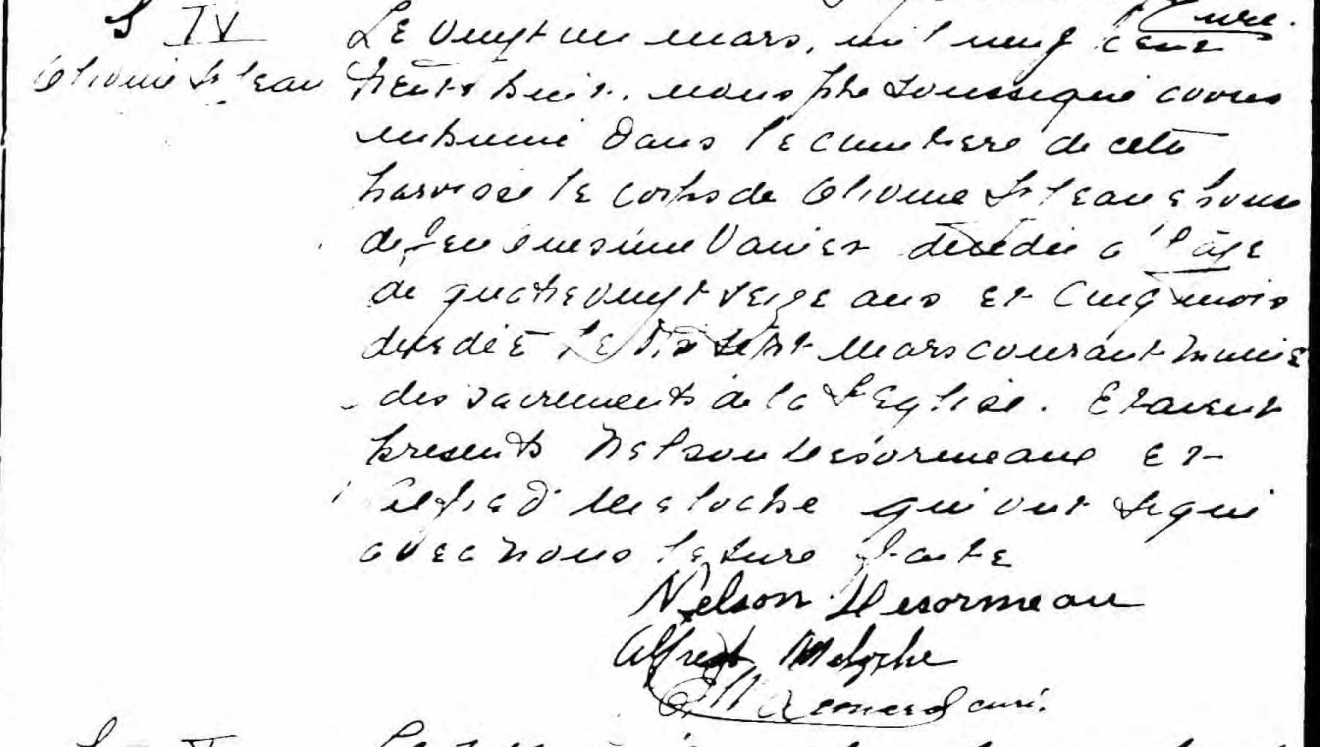 Curé.
S IV
Olivine St Jean
Le vingt un mars, mil neuf cent
trente huit, nous ptre soussigné avons
inhumé dans le cimetiere de cette
paroisse le corps de Olivine St Jean epouse
de feu Onesime Vanier décédée a l'âge
de quatre vingt seize ans et cinq mois
décédée le dix sept mars courant munie
des sacrements de la Ste Eglise. Etaient
presents Nelson Desormeaux et
Alfred Meloche qui ont signé
avec nous lecture faite
Nelson Desormeau
Alfred Meloche
curé.